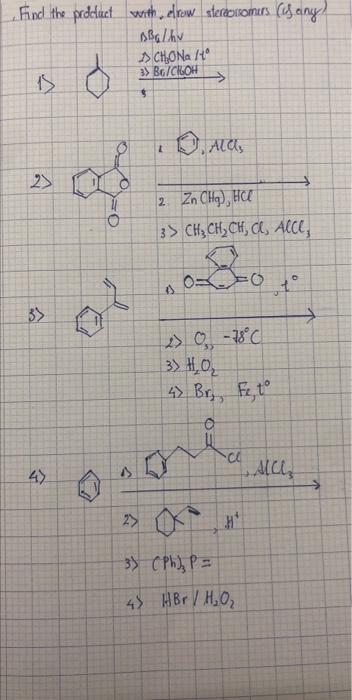 Find the prodcut with, draw stereoisomers (if any)
1) Br2/hv
2) CH3ONa/t°
3) Br2/CH3OH
1)
O
O
O
1. , AlCl3
2)
2. Zn(Hg), HCl
3) CH3CH2CH2Cl, AlCl3
1) O= =O, t°
3)
2) O3, -78°C
3) H2O2
4) Br2, Fe, t°
O
4) 1) Cl, AlCl3
2) , H+
3) (Ph)3P=
4) HBr/H2O2